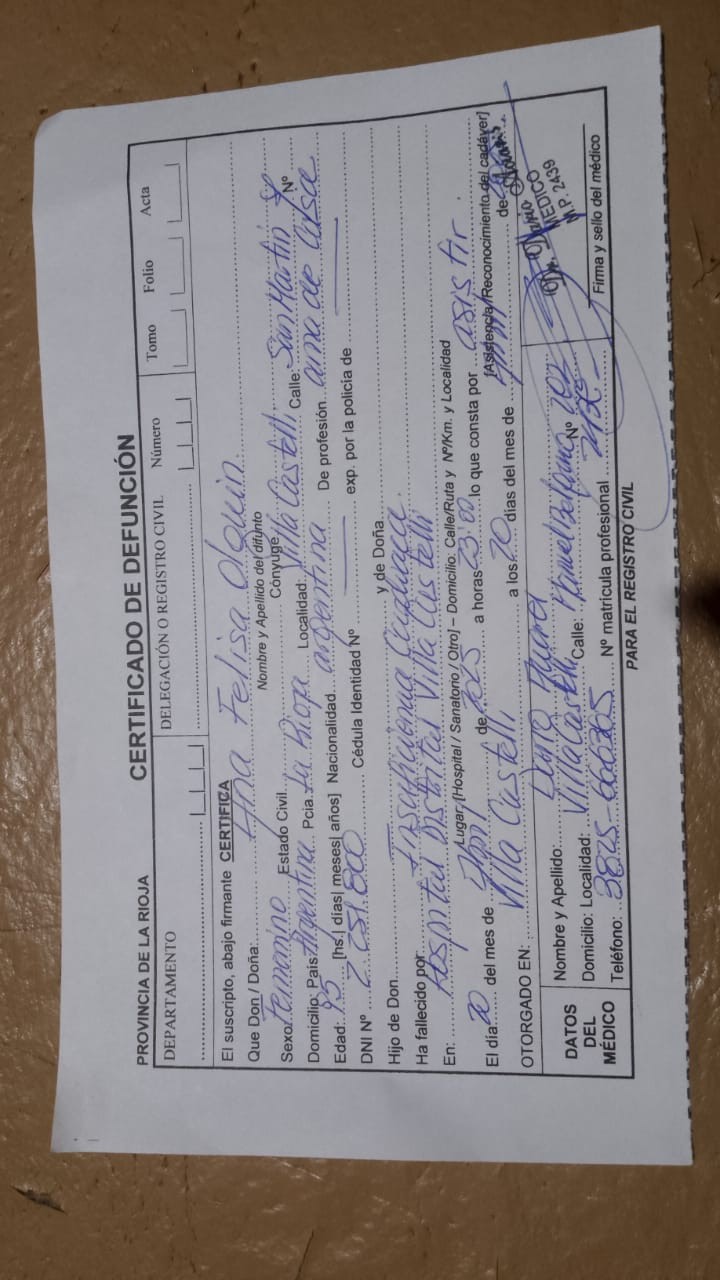 PROVINCIA DE LA RIOJA CERTIFICADO DE DEFUNCIÓN
DEPARTAMENTO DELEGACIÓN O REGISTRO CIVIL Número Tomo Folio Acta
El suscripto, abajo firmante CERTIFICA
Que Don / Doña: Ana Felisa Olguin
Nombre y Apellido del difunto
Sexo Femenino Estado Civil Cónyuge
Domicilio: País Argentina Pcia. La Rioja Localidad: Villa Castelli Calle: San Martin Nº
Edad: 95 [hs.| días| meses| años] Nacionalidad argentina De profesión ama de casa
DNI Nº Cédula Identidad Nº exp. por la policía de
Hijo de Don y de Doña
Ha fallecido por: Insuficiencia
En: Hospital Distrital Villa Castelli
Lugar [Hospital / Sanatorio / Otro] – Domicilio: Calle/Ruta y Nº/Km. y Localidad
El día 20 del mes de Abril de 2025 a horas 23:00 lo que consta por asistir.
[Asistencia/Reconocimiento del cadáver]
OTORGADO EN: Villa Castelli a los 20 días del mes de Abril de
DATOS DEL MÉDICO
Nombre y Apellido: Dario
Domicilio: Localidad: Villa Castelli Calle: Manuel Belgrano Nº
Teléfono: 3825-666365 Nº matrícula profesional
Dr. Dario
MEDICO
M.P. 2439
Firma y sello del médico
PARA EL REGISTRO CIVIL